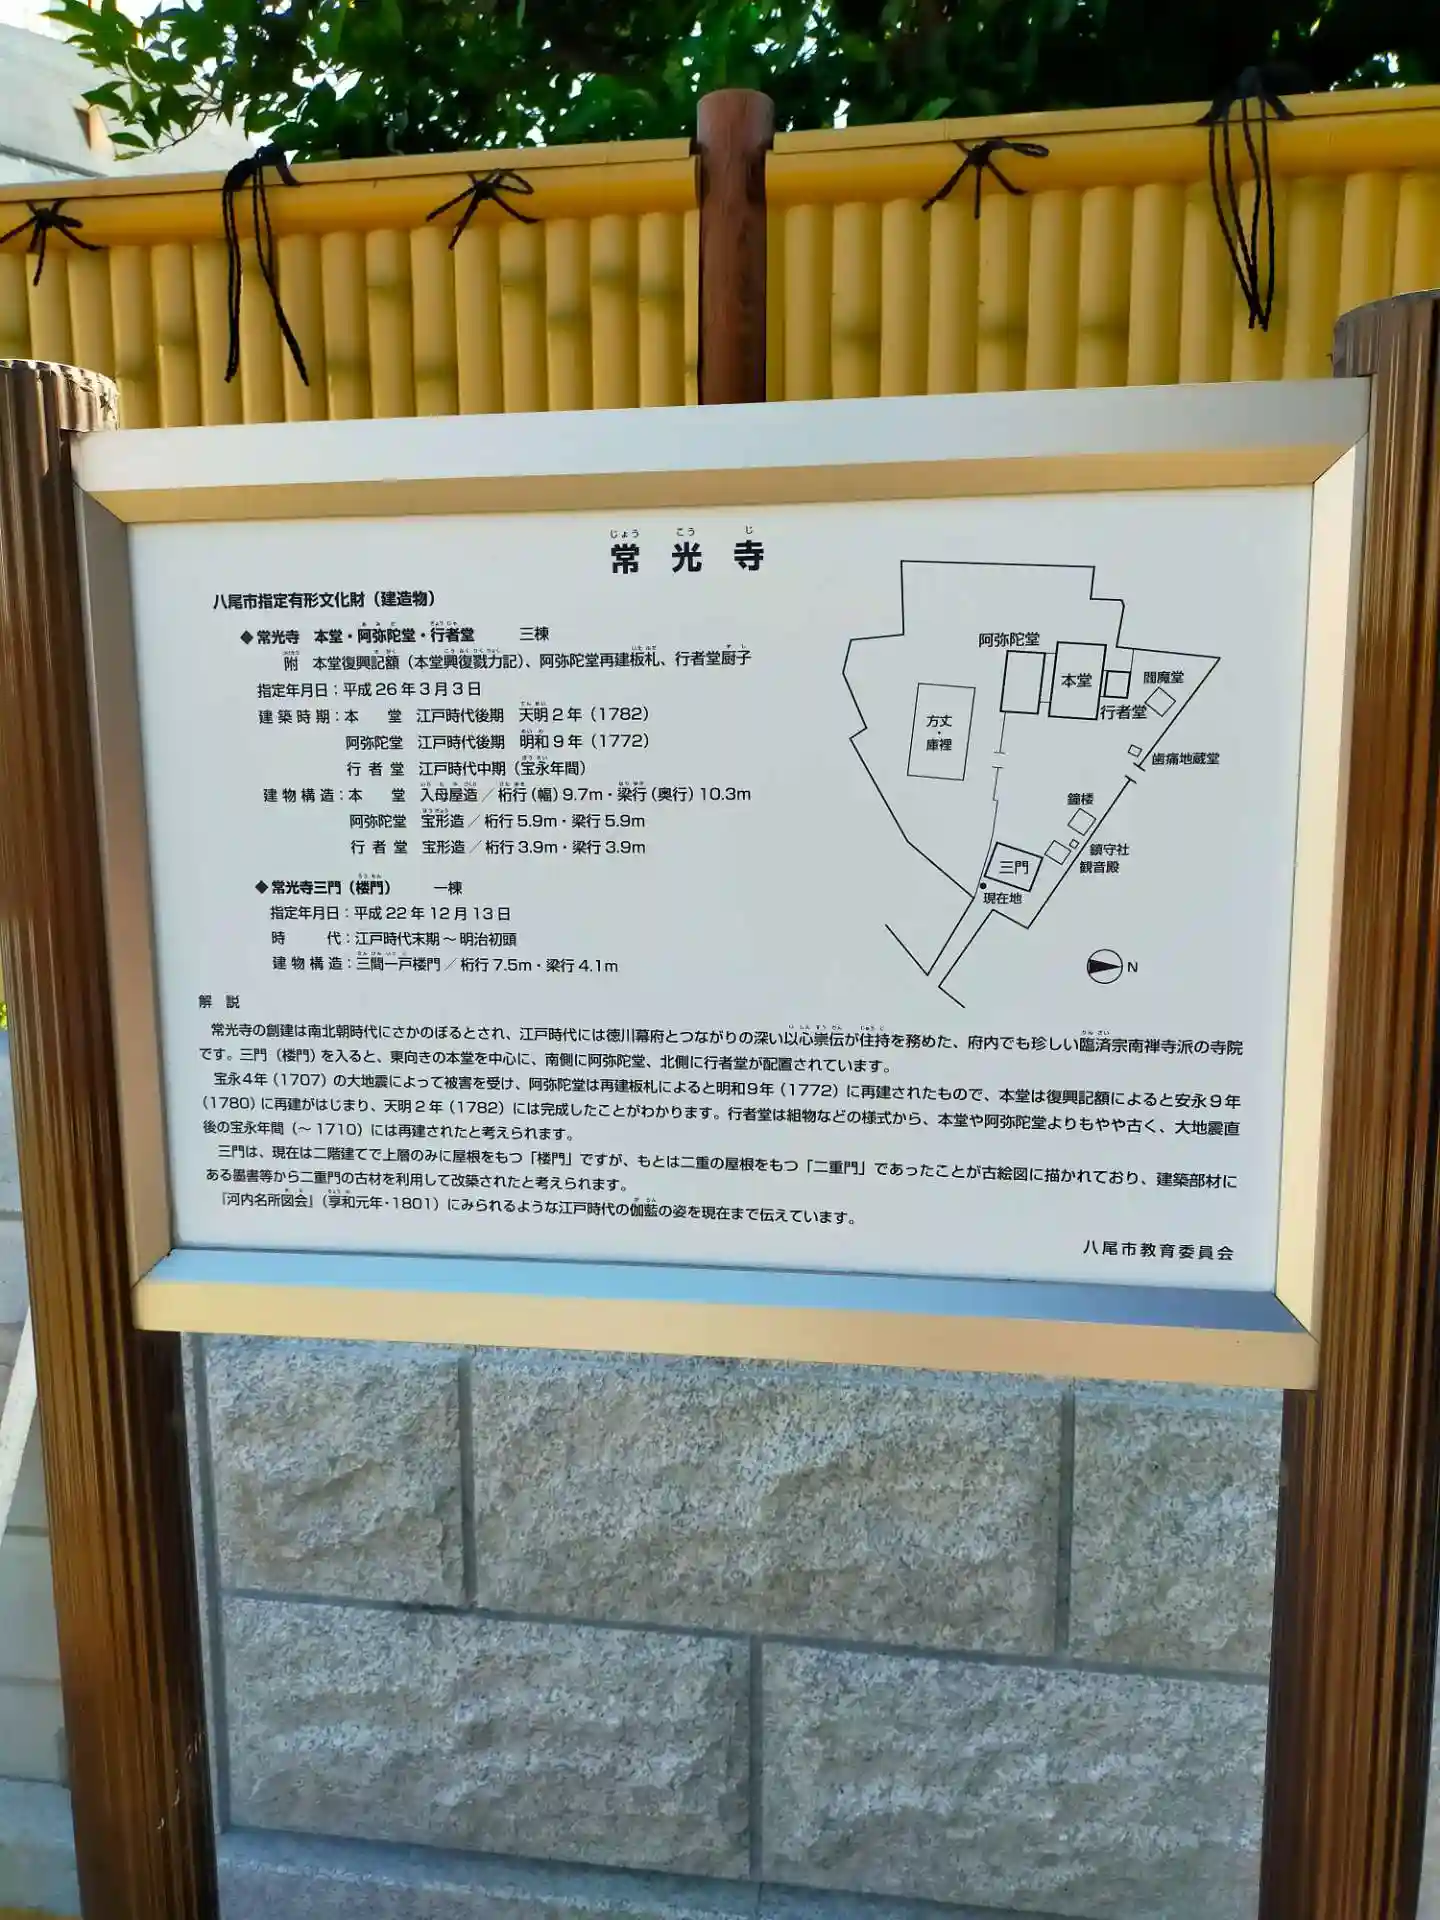 常光寺
じょう こう じ
八尾市指定有形文化財（建造物）
◆常光寺 本堂・阿弥陀堂・行者堂 三棟
附 本堂復興記額（本堂興復戮力記）、阿弥陀堂再建板札、行者堂厨子
指定年月日：平成26年3月3日
建築時期：本 堂 江戸時代後期 天明2年（1782）
阿弥陀堂 江戸時代後期 明和9年（1772）
行者堂 江戸時代中期（宝永年間）
建物構造：本 堂 入母屋造／桁行（幅）9.7m・梁行（奥行）10.3m
阿弥陀堂 宝形造／桁行5.9m・梁行5.9m
行者堂 宝形造／桁行3.9m・梁行3.9m
◆常光寺三門（楼門） 一棟
指定年月日：平成22年12月13日
時 代：江戸時代末期～明治初頭
建物構造：三間一戸楼門／桁行7.5m・梁行4.1m
阿弥陀堂
本堂
行者堂
閻魔堂
方丈・庫裡
歯痛地蔵堂
鐘楼
鎮守社
観音殿
三門
現在地
N
解 説
常光寺の創建は南北朝時代にさかのぼるとされ、江戸時代には徳川幕府とつながりの深い以心崇伝が住持を務めた、府内でも珍しい臨済宗南禅寺派の寺院
です。三門（楼門）を入ると、東向きの本堂を中心に、南側に阿弥陀堂、北側に行者堂が配置されています。
宝永4年（1707）の大地震によって被害を受け、阿弥陀堂は再建板札によると明和9年（1772）に再建されたもので、本堂は復興記額によると安永9年
（1780）に再建がはじまり、天明2年（1782）には完成したことがわかります。行者堂は組物などの様式から、本堂や阿弥陀堂よりもやや古く、大地震直
後の宝永年間（～1710）には再建されたと考えられます。
三門は、現在は二階建てで上層のみに屋根をもつ「楼門」ですが、もとは二重の屋根をもつ「二重門」であったことが古絵図に描かれており、建築部材に
ある墨書等から二重門の古材を利用して改築されたと考えられます。
『河内名所図会』（享和元年・1801）にみられるような江戸時代の伽藍の姿を現在まで伝えています。
八尾市教育委員会